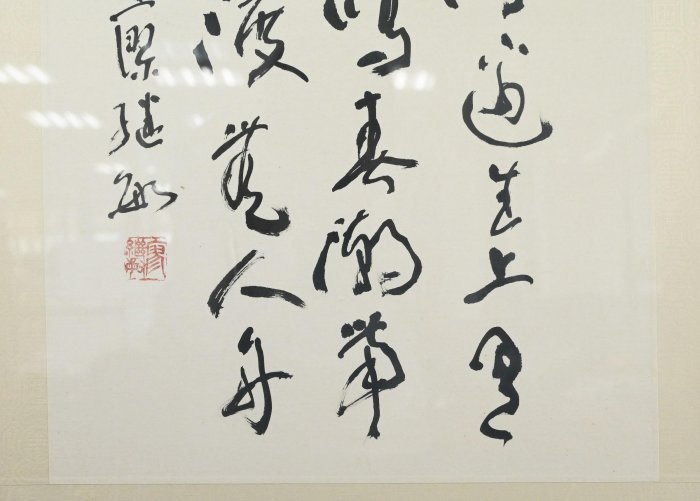 邊生上有
鳴春潮帶
渡無人舟
廖繼敏